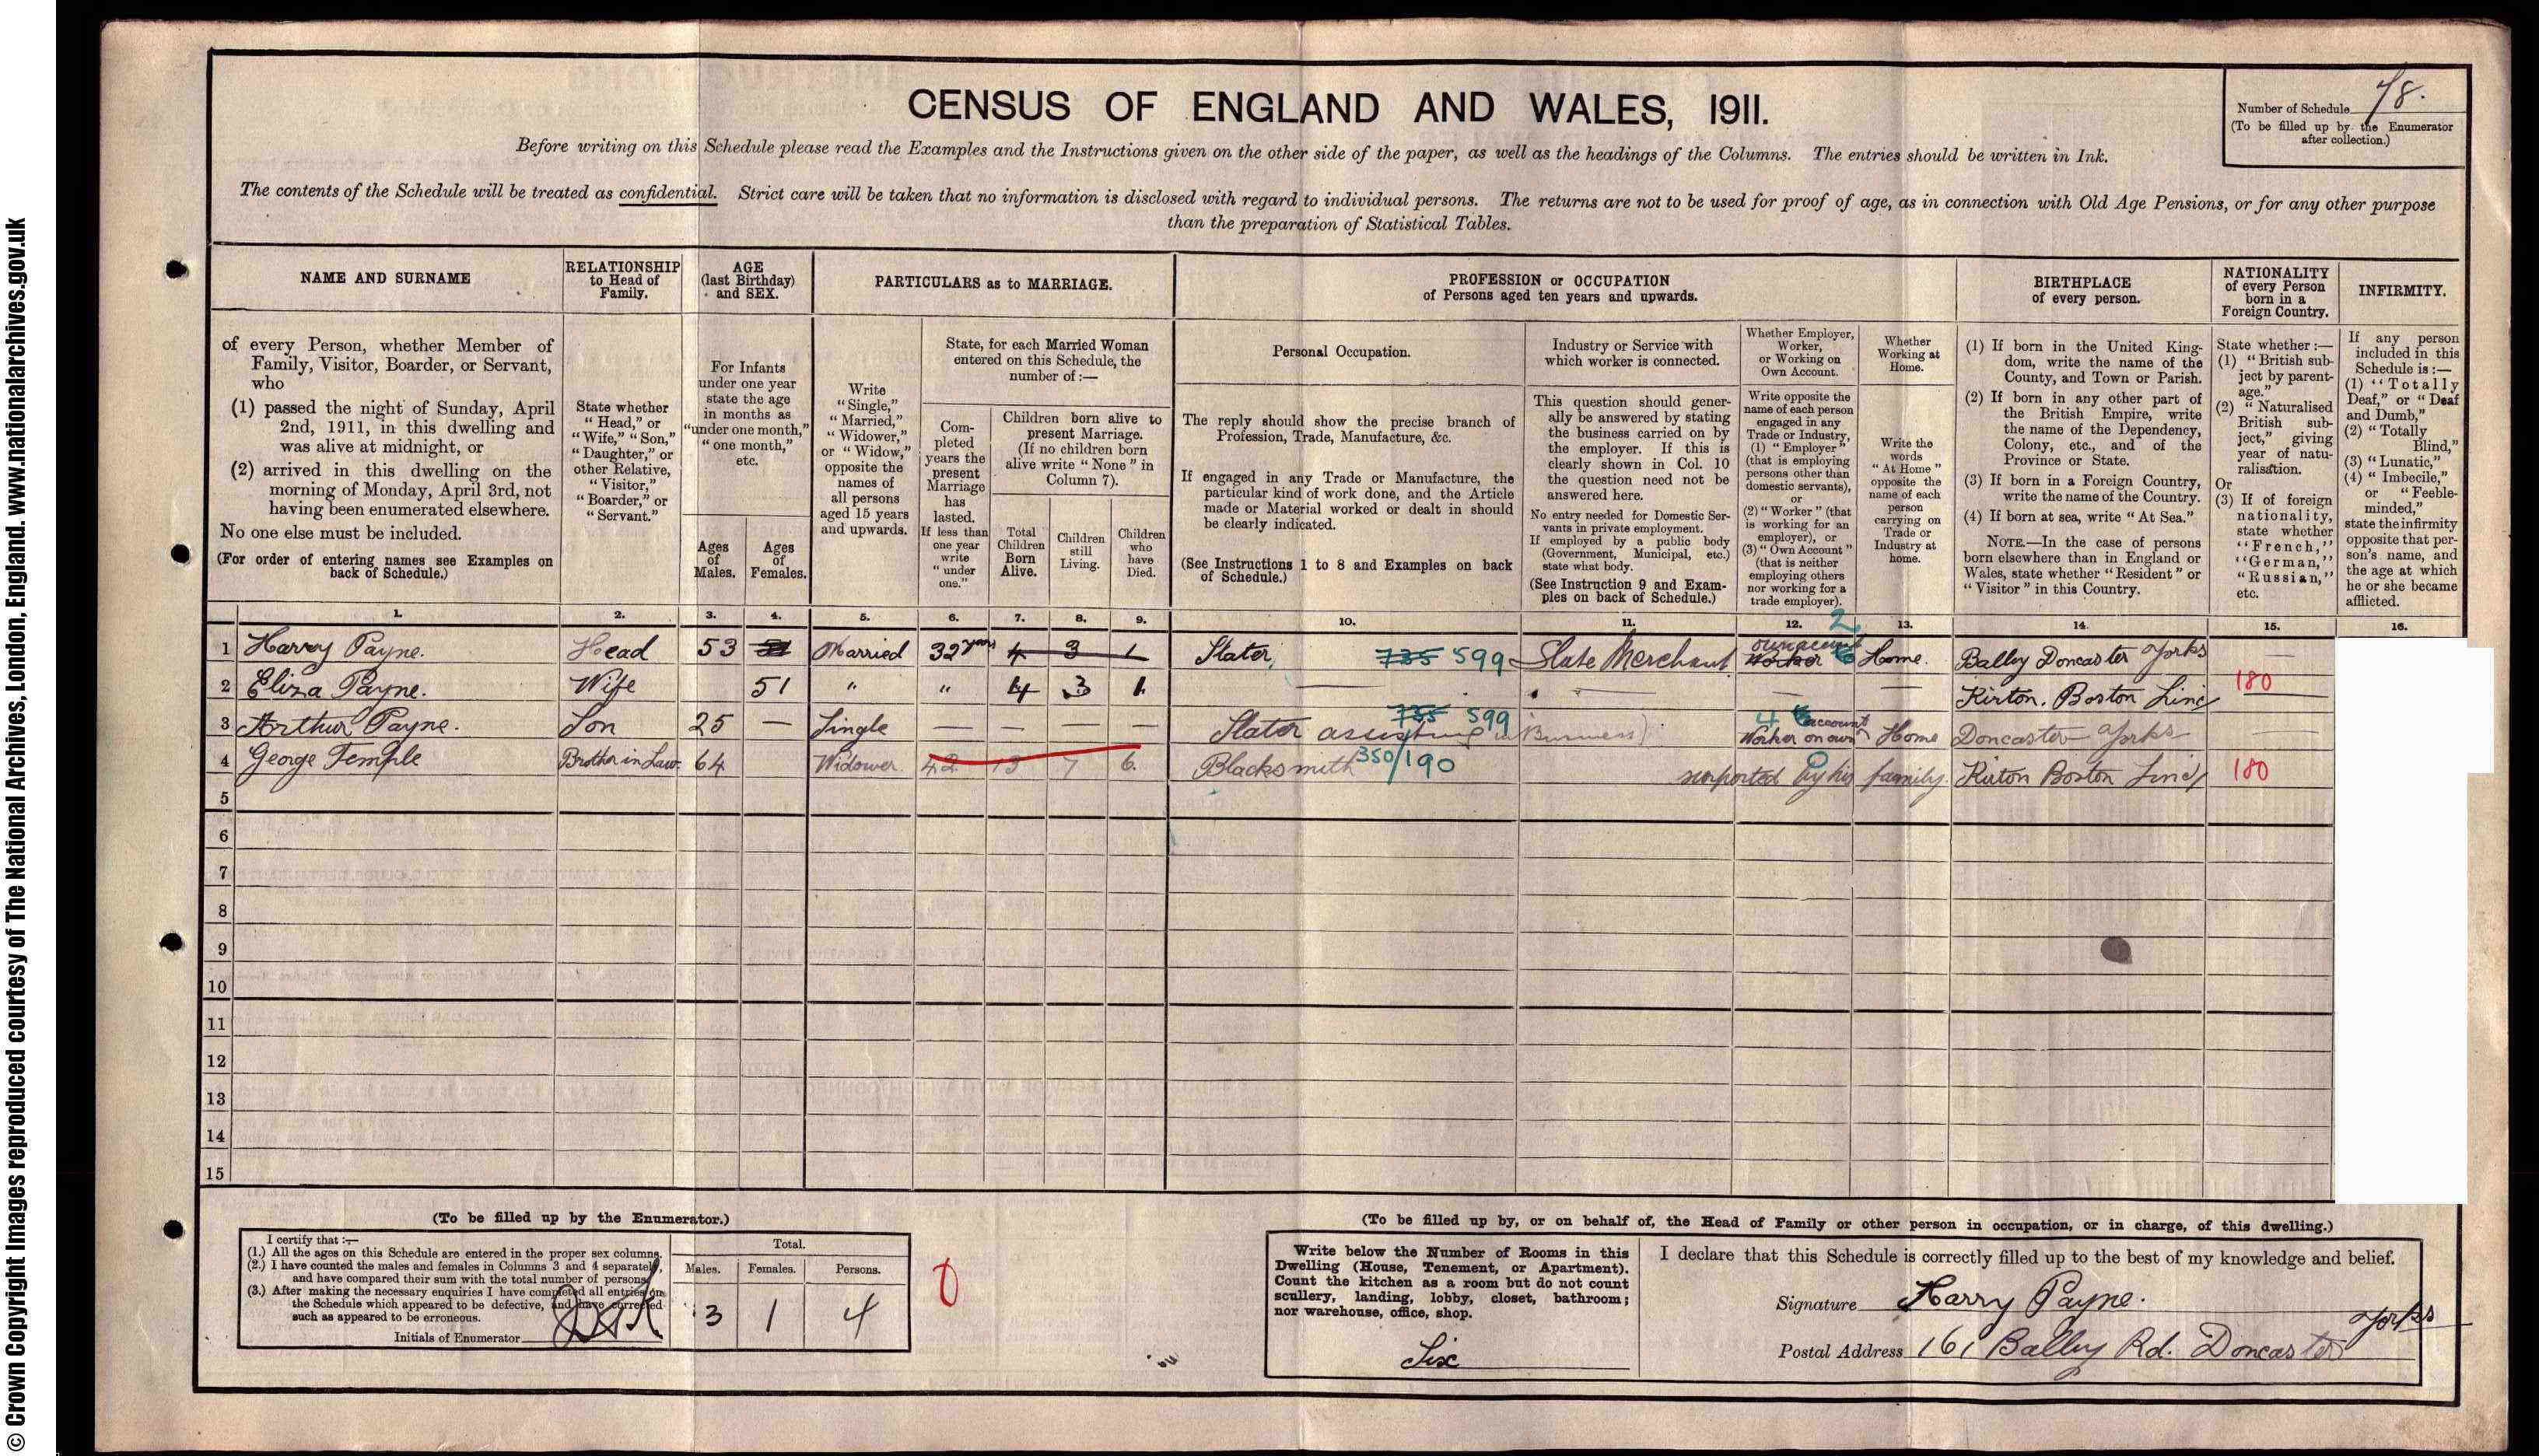 © Crown Copyright Images reproduced courtesy of The National Archives, London, England. www.nationalarchives.gov.uk
CENSUS OF ENGLAND AND WALES, 1911.
Number of Schedule 78.
(To be filled up by the Enumerator
after collection.)
Before writing on this Schedule please read the Examples and the Instructions given on the other side of the paper, as well as the headings of the Columns. The entries should be written in Ink.
The contents of the Schedule will be treated as confidential. Strict care will be taken that no information is disclosed with regard to individual persons. The returns are not to be used for proof of age, as in connection with Old Age Pensions, or for any other purpose
than the preparation of Statistical Tables.
NAME AND SURNAME
of every Person, whether Member of
Family, Visitor, Boarder, or Servant,
who
(1) passed the night of Sunday, April
2nd, 1911, in this dwelling and
was alive at midnight, or
(2) arrived in this dwelling on the
morning of Monday, April 3rd, not
having been enumerated elsewhere.
No one else must be included.
(For order of entering names see Examples on
back of Schedule.)
RELATIONSHIP
to Head of
Family.
State whether
"Head," or
"Wife," "Son,"
"Daughter," or
other Relative,
"Visitor,"
"Boarder," or
"Servant."
AGE
(last Birthday)
and SEX.
For Infants
under one year
state the age
in months as
"under one month,"
"one month,"
etc.
Ages
of
Males.
Ages
of
Females.
PARTICULARS as to MARRIAGE.
Write
"Single,"
"Married,"
"Widower,"
or "Widow,"
opposite the
names of
all persons
aged 15 years
and upwards.
State, for each Married Woman
entered on this Schedule, the
number of :—
Com-
pleted
years the
present
Marriage
has
lasted.
If less than
one year
write
"under
one."
Children born alive to
present Marriage.
(If no children born
alive write "None" in
Column 7).
Total
Children
Born
Alive.
Children
still
Living.
Children
who
have
Died.
PROFESSION or OCCUPATION
of Persons aged ten years and upwards.
Personal Occupation.
The reply should show the precise branch of
Profession, Trade, Manufacture, &c.
If engaged in any Trade or Manufacture, the
particular kind of work done, and the Article
made or Material worked or dealt in should
be clearly indicated.
(See Instructions 1 to 8 and Examples on back
of Schedule.)
Industry or Service with
which worker is connected.
This question should gener-
ally be answered by stating
the business carried on by
the employer. If this is
clearly shown in Col. 10
the question need not be
answered here.
No entry needed for Domestic Ser-
vants in private employment.
If employed by a public body
(Government, Municipal, etc.)
state what body.
(See Instruction 9 and Exam-
ples on back of Schedule.)
Whether Employer,
Worker,
or Working on
Own Account.
Write opposite the
name of each person
engaged in any
Trade or Industry,
(1) "Employer"
(that is employing
persons other than
domestic servants),
or
(2) "Worker" (that
is working for an
employer), or
(3) "Own Account"
(that is neither
employing others
nor working for a
trade employer).
Whether
Working at
Home.
Write the
words
"At Home"
opposite the
name of each
person
carrying on
Trade or
Industry at
home.
BIRTHPLACE
of every person.
(1) If born in the United King-
dom, write the name of the
County, and Town or Parish.
(2) If born in any other part of
the British Empire, write
the name of the Dependency,
Colony, etc., and of the
Province or State.
(3) If born in a Foreign Country,
write the name of the Country.
(4) If born at sea, write "At Sea."
NOTE.—In the case of persons
born elsewhere than in England or
Wales, state whether "Resident" or
"Visitor" in this Country.
NATIONALITY
of every Person
born in a
Foreign Country.
State whether :—
(1) "British sub-
ject by parent-
age."
(2) "Naturalised
British sub-
ject," giving
year of natu-
ralisation.
Or
(3) If of foreign
nationality,
state whether
"French,"
"German,"
"Russian,"
etc.
INFIRMITY.
If any person
included in this
Schedule is :—
(1) "Totally
Deaf," or "Deaf
and Dumb,"
(2) "Totally
Blind,"
(3) "Lunatic,"
(4) "Imbecile,"
or "Feeble-
minded,"
state the infirmity
opposite that per-
son's name, and
the age at which
he or she became
afflicted.
1. 2. 3. 4. 5. 6. 7. 8. 9. 10. 11. 12. 13. 14. 15. 16.
1 Harry Payne. Head 53 51 Married 32 years 4 3 1 Slater, 735 599 Slate Merchant own account Worker 2 Home. Balby Doncaster Yorks
2 Eliza Payne. Wife 51 " " 4 3 1 — — — — Kirton. Boston Linc 180
3 Arthur Payne. Son 25 — Single — — — — Slater assisting in Business) 735 599 4 Worker on own account Home Doncaster Yorks —
4 George Temple Brother in Law. 64 Widower. 42 13 7 6. Blacksmith 350/190 0 suported by his family. Kirton Boston Linc 180
5
6
7
8
9
10
11
12
13
14
15
(To be filled up by the Enumerator.)
I certify that :—
(1.) All the ages on this Schedule are entered in the proper sex columns.
(2.) I have counted the males and females in Columns 3 and 4 separately,
and have compared their sum with the total number of persons.
(3.) After making the necessary enquiries I have completed all entries on
the Schedule which appeared to be defective, and have corrected
such as appeared to be erroneous.
Initials of Enumerator
Total.
Males. Females. Persons.
3 1 4
0
(To be filled up by, or on behalf of, the Head of Family or other person in occupation, or in charge, of this dwelling.)
Write below the Number of Rooms in this
Dwelling (House, Tenement, or Apartment).
Count the kitchen as a room but do not count
scullery, landing, lobby, closet, bathroom;
nor warehouse, office, shop.
Six
I declare that this Schedule is correctly filled up to the best of my knowledge and belief.
Signature Harry Payne.
Postal Address 161 Balby Rd. Doncaster Yorks